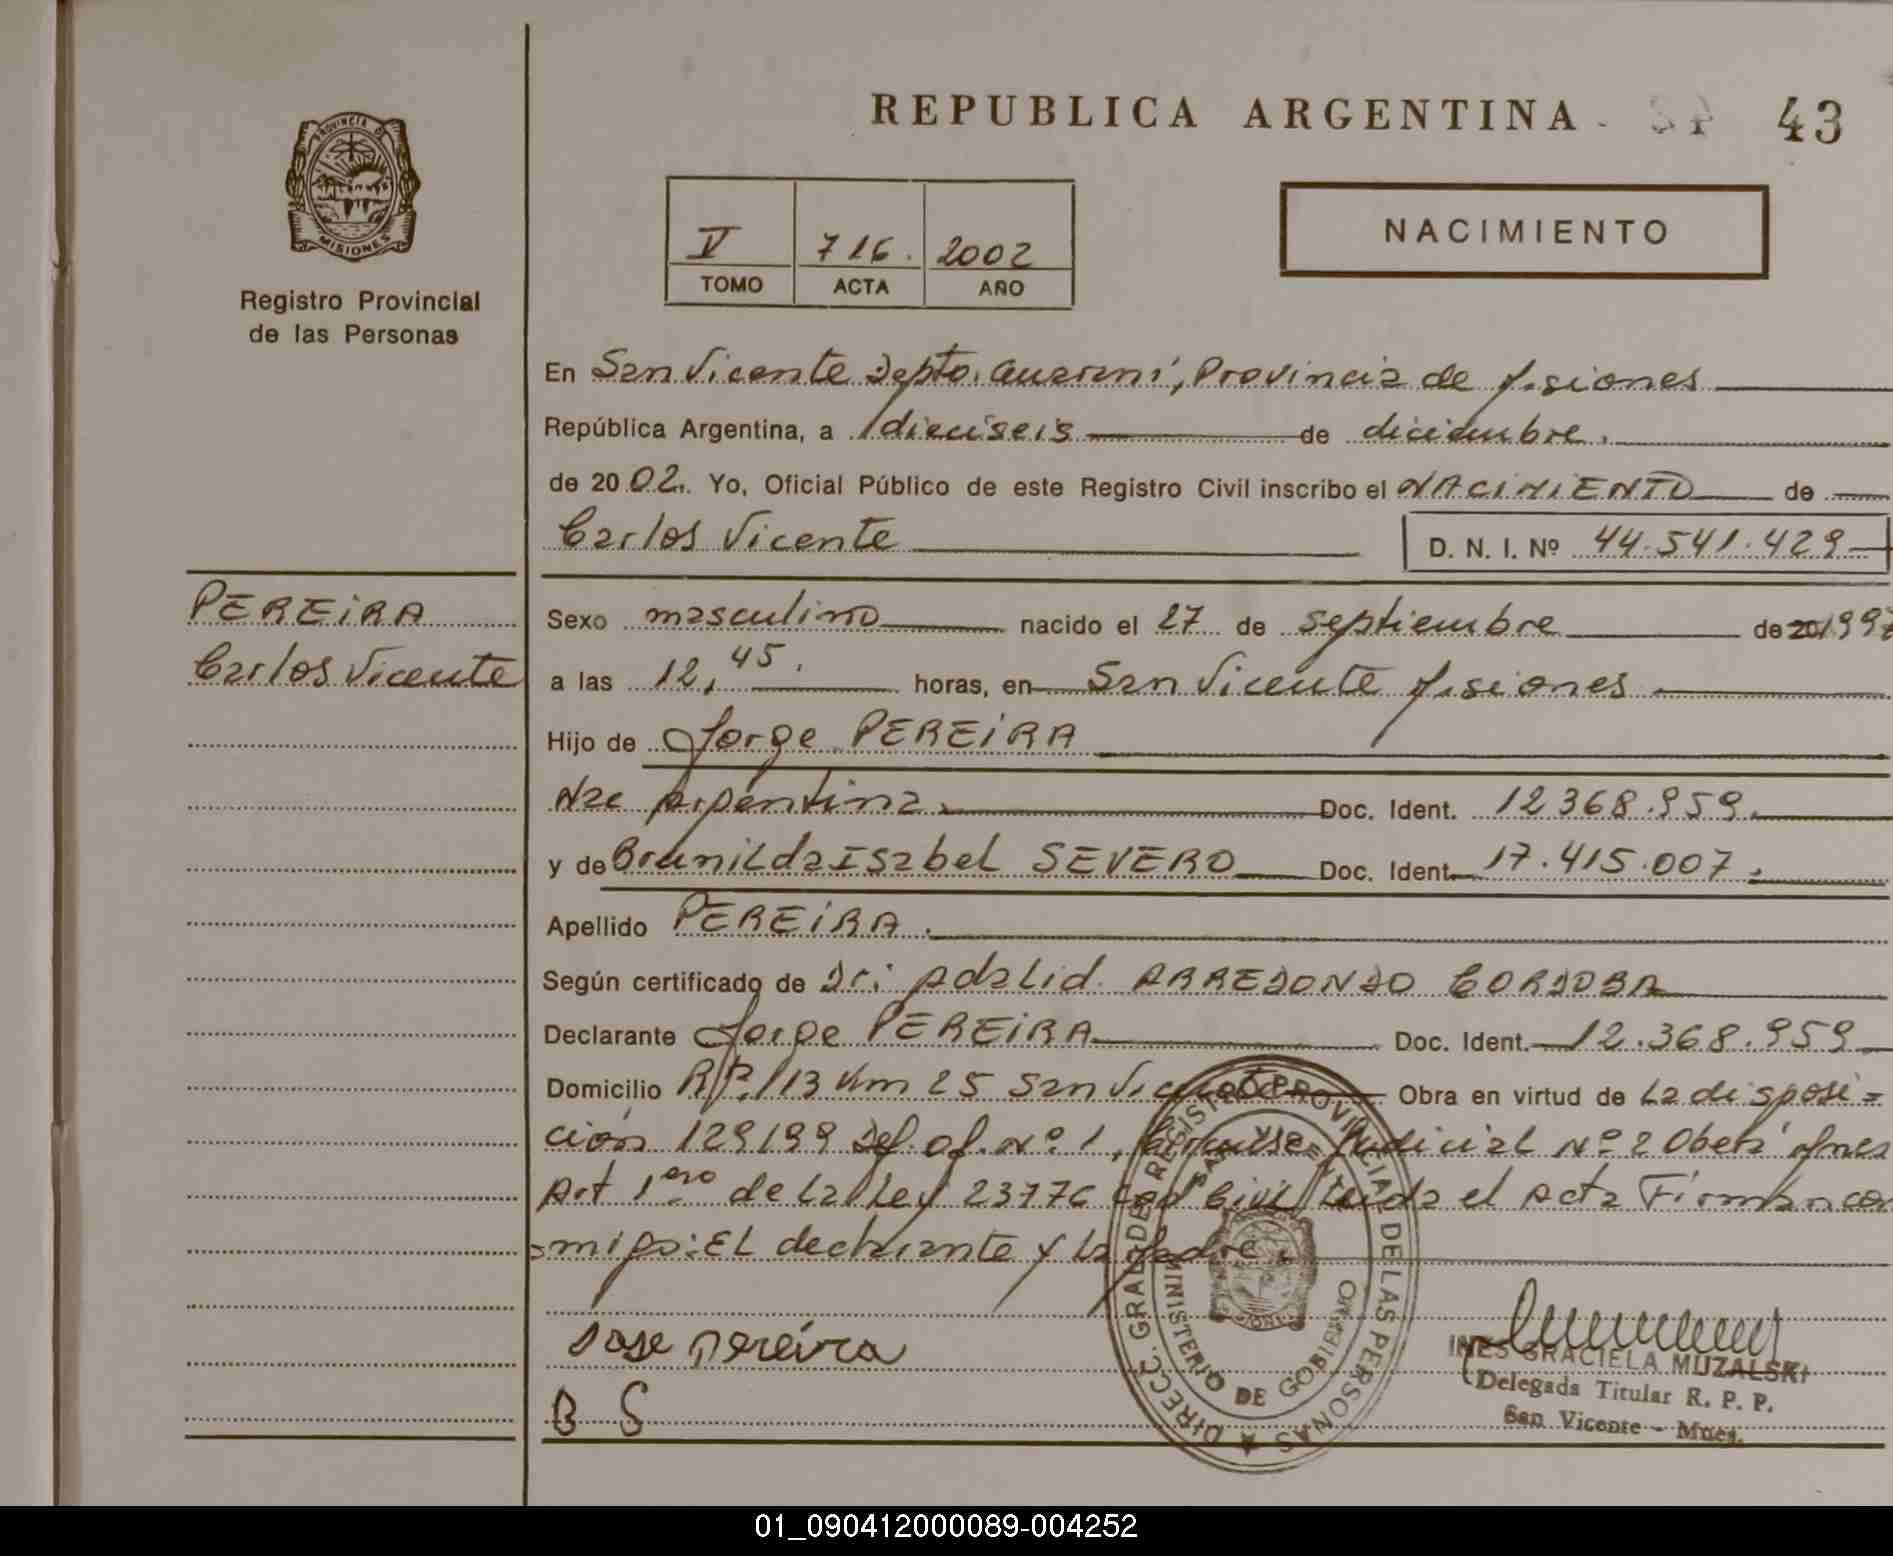 REPUBLICA ARGENTINA 43
PROVINCIA DE
MISIONES
Registro Provincial
de las Personas
V 716. 2002
TOMO ACTA AÑO
NACIMIENTO
En San Vicente Depto. Guarani, Provincia de Misiones
República Argentina, a dieciseis de diciembre.
de 2002. Yo, Oficial Público de este Registro Civil inscribo el NACIMIENTO de
Carlos Vicente D. N. I. Nº 44.541.429
PEREIRA
Carlos Vicente
Sexo masculino nacido el 27 de septiembre de 20 1997
a las 12,45. horas, en San Vicente Misiones.
Hijo de Jorge PEREIRA
Nac Argentina. Doc. Ident. 12368.959.
y de Brunilda Isabel SEVERO Doc. Ident. 17.415.007.
Apellido PEREIRA.
Según certificado de Dr: Adalid ARREDONDO CORDOBA
Declarante Jorge PEREIRA Doc. Ident. 12.368.959
Domicilio R/P. 13 Km 25 San Vicente Obra en virtud de La disposi=
ción 129/99 Def. Of. Nº 1, Judicial Nº 2 Oberá Mnes
Art 1ero de La Ley 23776 Cod Civil Leida el Acta Firman con
migo: EL declarante y La Madre.
Jose pereira
B S
DIRECC. GRAL. DE REGISTRO PROVINCIAL DE LAS PERSONAS
SAN VICENTE
MINISTERIO DE GOBIERNO
INES GRACIELA MUZALSKI
Delegada Titular R. P. P.
San Vicente - Mnes.
01_090412000089-004252